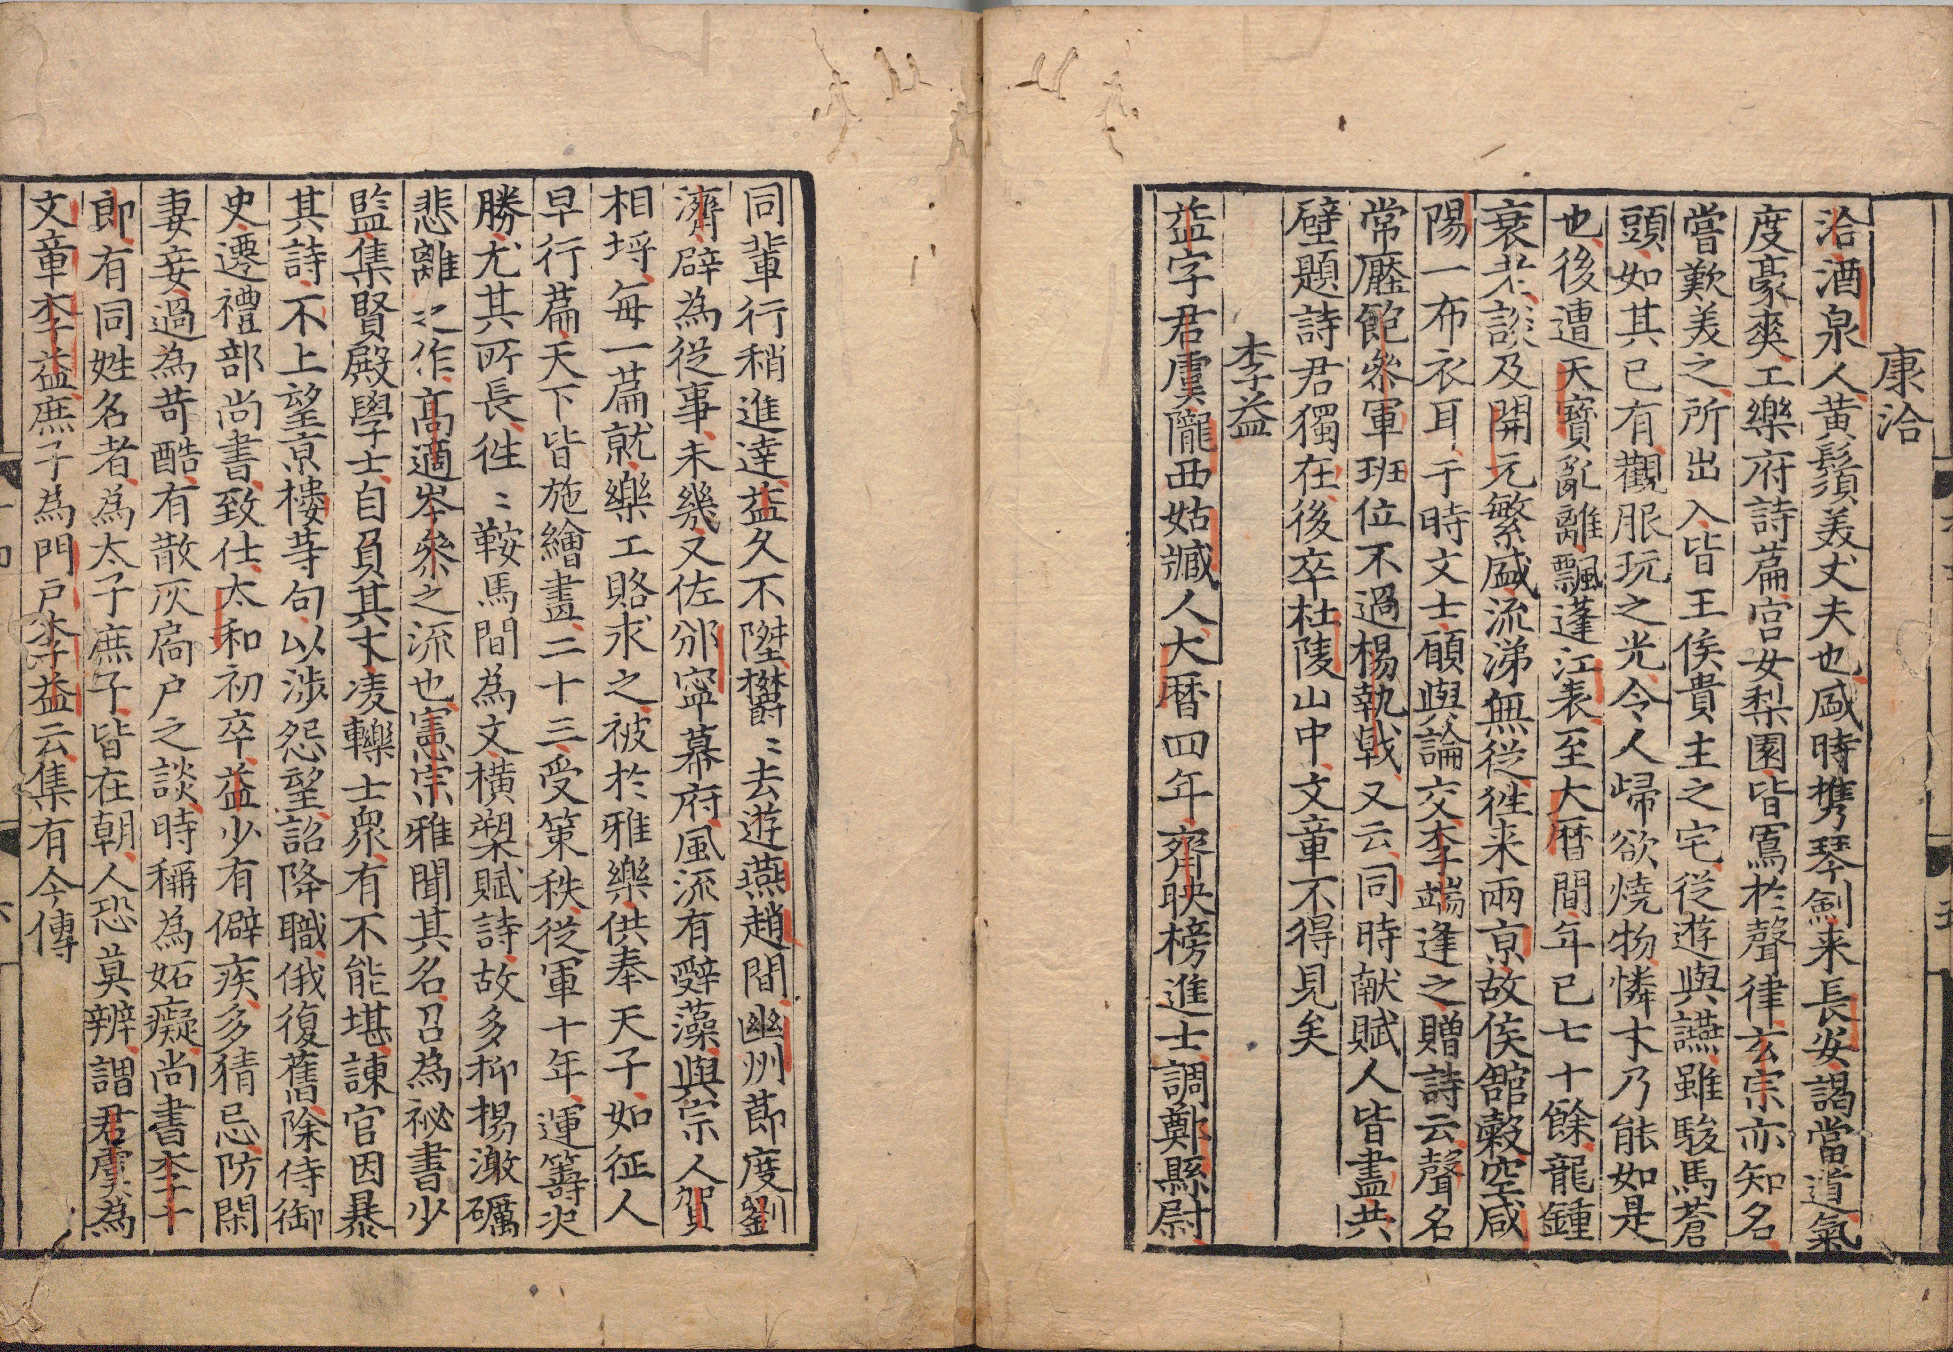 康洽
洽酒泉人黄鬚美丈夫也盛時携琴劍来長安謁當道氣
度豪爽工樂府詩篇宫女梨園皆寫於聲律玄宗亦知名
嘗歎美之所出入皆王侯貴主之宅從遊與讌雖駿馬蒼
頭如其已有觀服玩之光令人歸欲燒物憐才乃能如是
也後遭天寶亂離飄蓬江表至大曆間年已七十餘龍鍾
衰老談及開元繁盛流涕無從徃来兩京故侯舘糓空咸
陽一布衣耳于時文士願與論交李端逢之贈詩云聲名
常壓鮑叅軍班位不過楊執戟又云同時献賦人皆盡共
壁題詩君獨在後卒杜陵山中文章不得見矣
李益
益字君虞隴西姑臧人大曆四年齊映榜進士調鄭縣尉
同輩行稍進逹益久不陞欝〻去遊燕趙間幽州節度劉
濟辟為從事未幾又佐邠寧幕府風流有辭藻與宗人賀
相埒每一篇就樂工賂求之被於雅樂供奉天子如征人
早行篇天下皆施繪畫二十三受策秩從軍十年運籌决
勝尤其所長徃〻鞍馬間為文横槊賦詩故多抑揚激礪
悲離之作高適岑叅之流也憲宗雅聞其名召為祕書少
監集賢殿學士自負其才凌轢士衆有不能堪諫官因暴
其詩不上望京樓等句以涉怨望詔降職俄復舊除侍御
史遷禮部尚書致仕太和初卒益少有僻疾多猜忌防閑
妻妾過為苛酷有散灰扃户之談時稱為妬癡尚書李十
郎有同姓名者為太子庶子皆在朝人恐莫辨謂君虞為
文章李益庶子為門戸李益云集有今傳